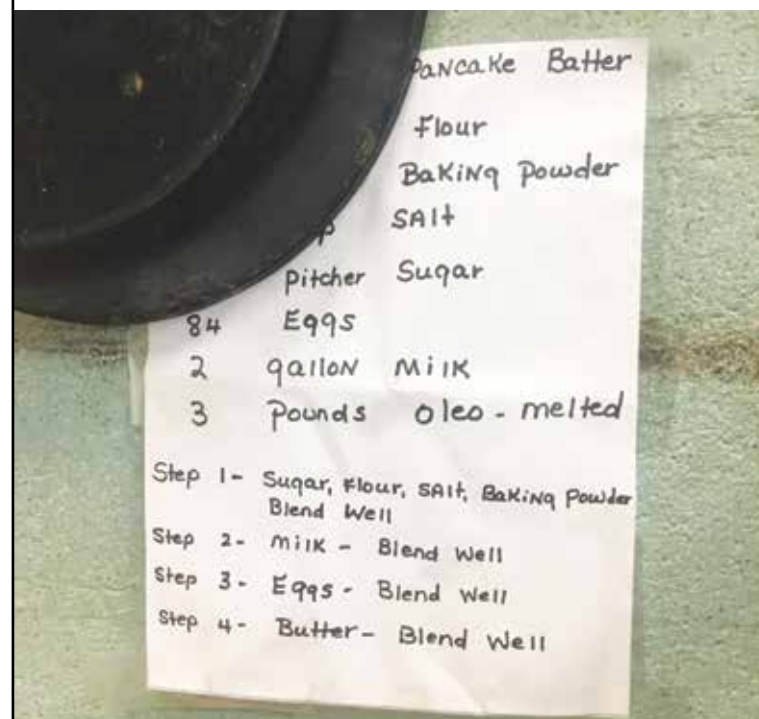 Pancake Batter
Flour
Baking Powder
Salt
Pitcher Sugar
84 Eggs
2 gallon Milk
3 Pounds oleo - melted
Step 1- Sugar, Flour, Salt, Baking Powder
Blend Well
Step 2- Milk - Blend Well
Step 3- Eggs - Blend Well
Step 4- Butter - Blend Well